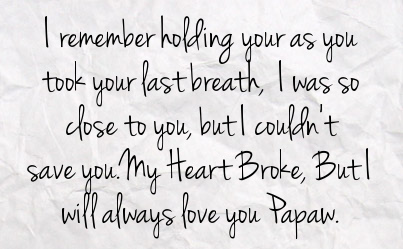 I remember holding your as you
took your last breath, I was so
close to you, but I couldn't
save you.My Heart Broke, But I
will always love you Papaw.